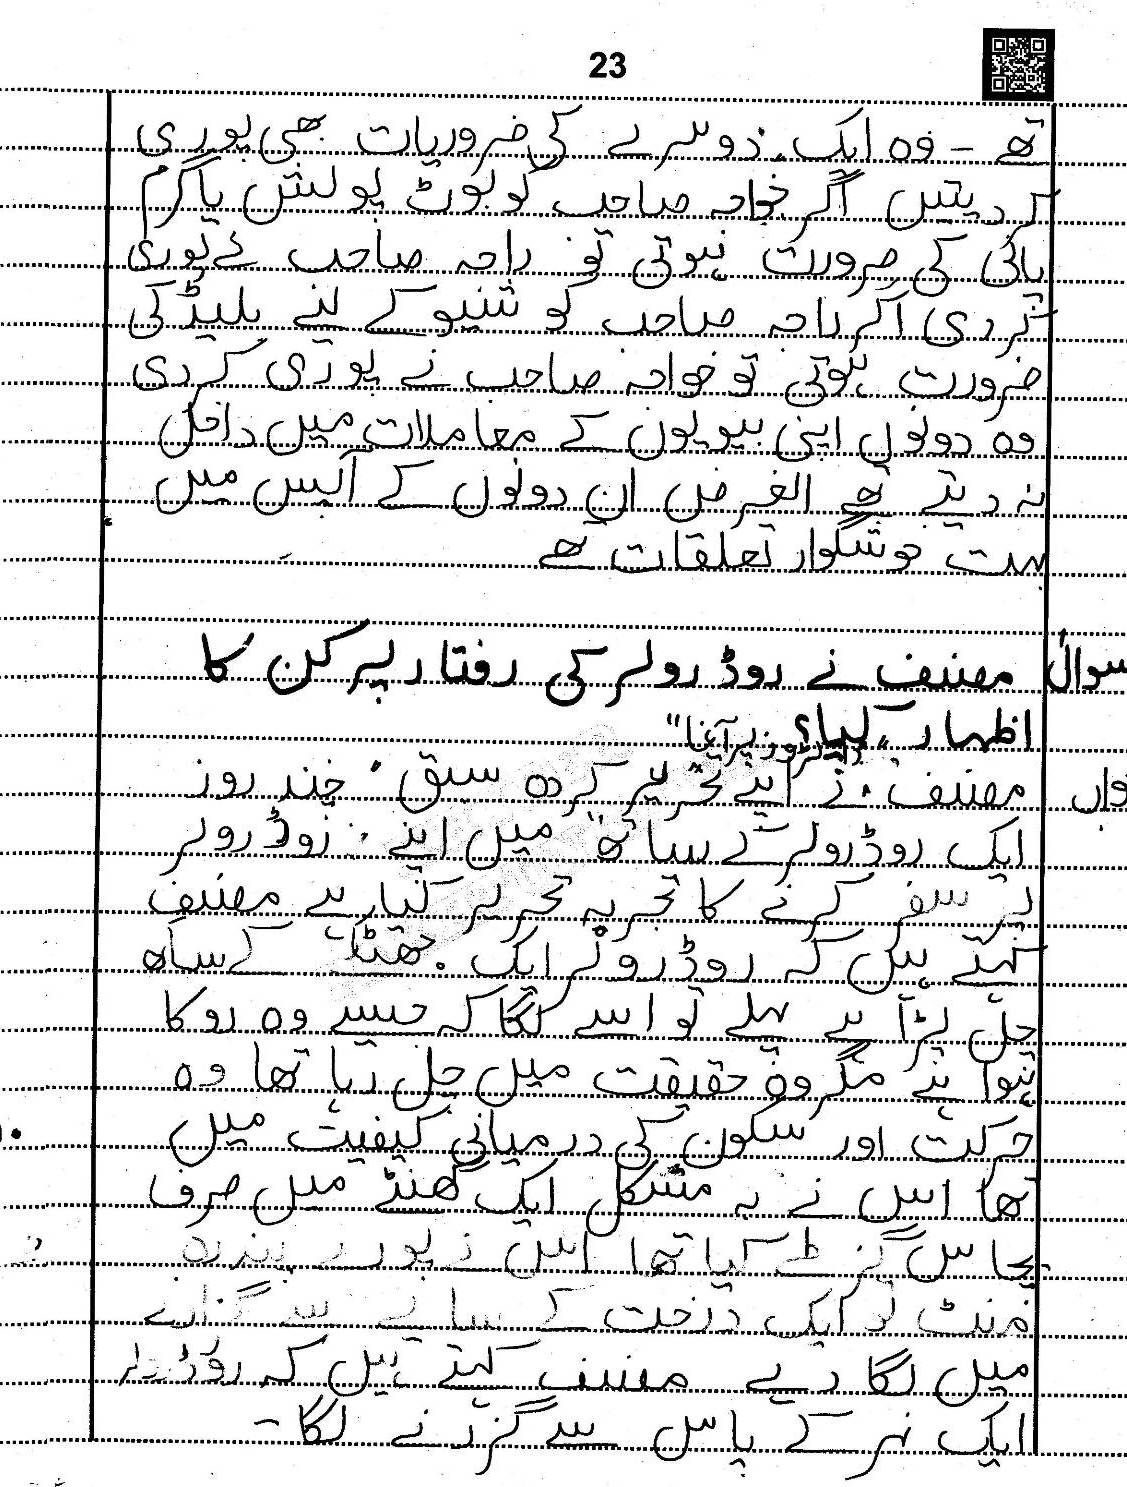 23
تھے - وہ ایک دوسرے کی ضروریات بھی پوری
کر دیتیں اگر خواجہ صاحب کو بوٹ پولش یا گرم
پانی کی ضرورت ہوتی تو راجہ صاحب نے پوری
کر دی اگر راجہ صاحب کو شیو کے لیے بلیڈ کی
ضرورت ہوتی تو خواجہ صاحب نے پوری کر دی
وہ دونوں اپنی بیویوں کے معاملات میں دافل
نہ دیتے تھے الغرض ان دونوں کے آپس میں
بہت خوشگوار تعلقات تھے
سوال مصنف نے روڈ رولر کی رفتار پر کن کا
اظہار کیا؟
واب مصنف نے اپنے تحریر کردہ سبق " چند روز
ایک روڈ رولر کے ساتھ" میں اپنے روڈ رولر
پر سفر کرنے کا تجربہ تحریر کیا ہے مصنف
کہتے ہیں کہ روڈ رولر ایک جھٹکے کے ساتھ
چل پڑا ہے پہلے تو اسے لگا کہ جیسے وہ روکا
ہوا ہے مگر وہ حقیقت میں چل رہا تھا وہ
حرکت اور سکون کی درمیانی کیفیت میں
تھا اس نے بہ مشکل ایک گھنٹے میں صرف
پچاس گز طے کیا تھا اس نے پورے پندرہ
منٹ تو ایک درخت کے سایے سے گزارے
میں لگا دیے مصنف کہتے ہیں کہ روڈ رولر
ایک نہر کے پاس سے گزرنے لگا -